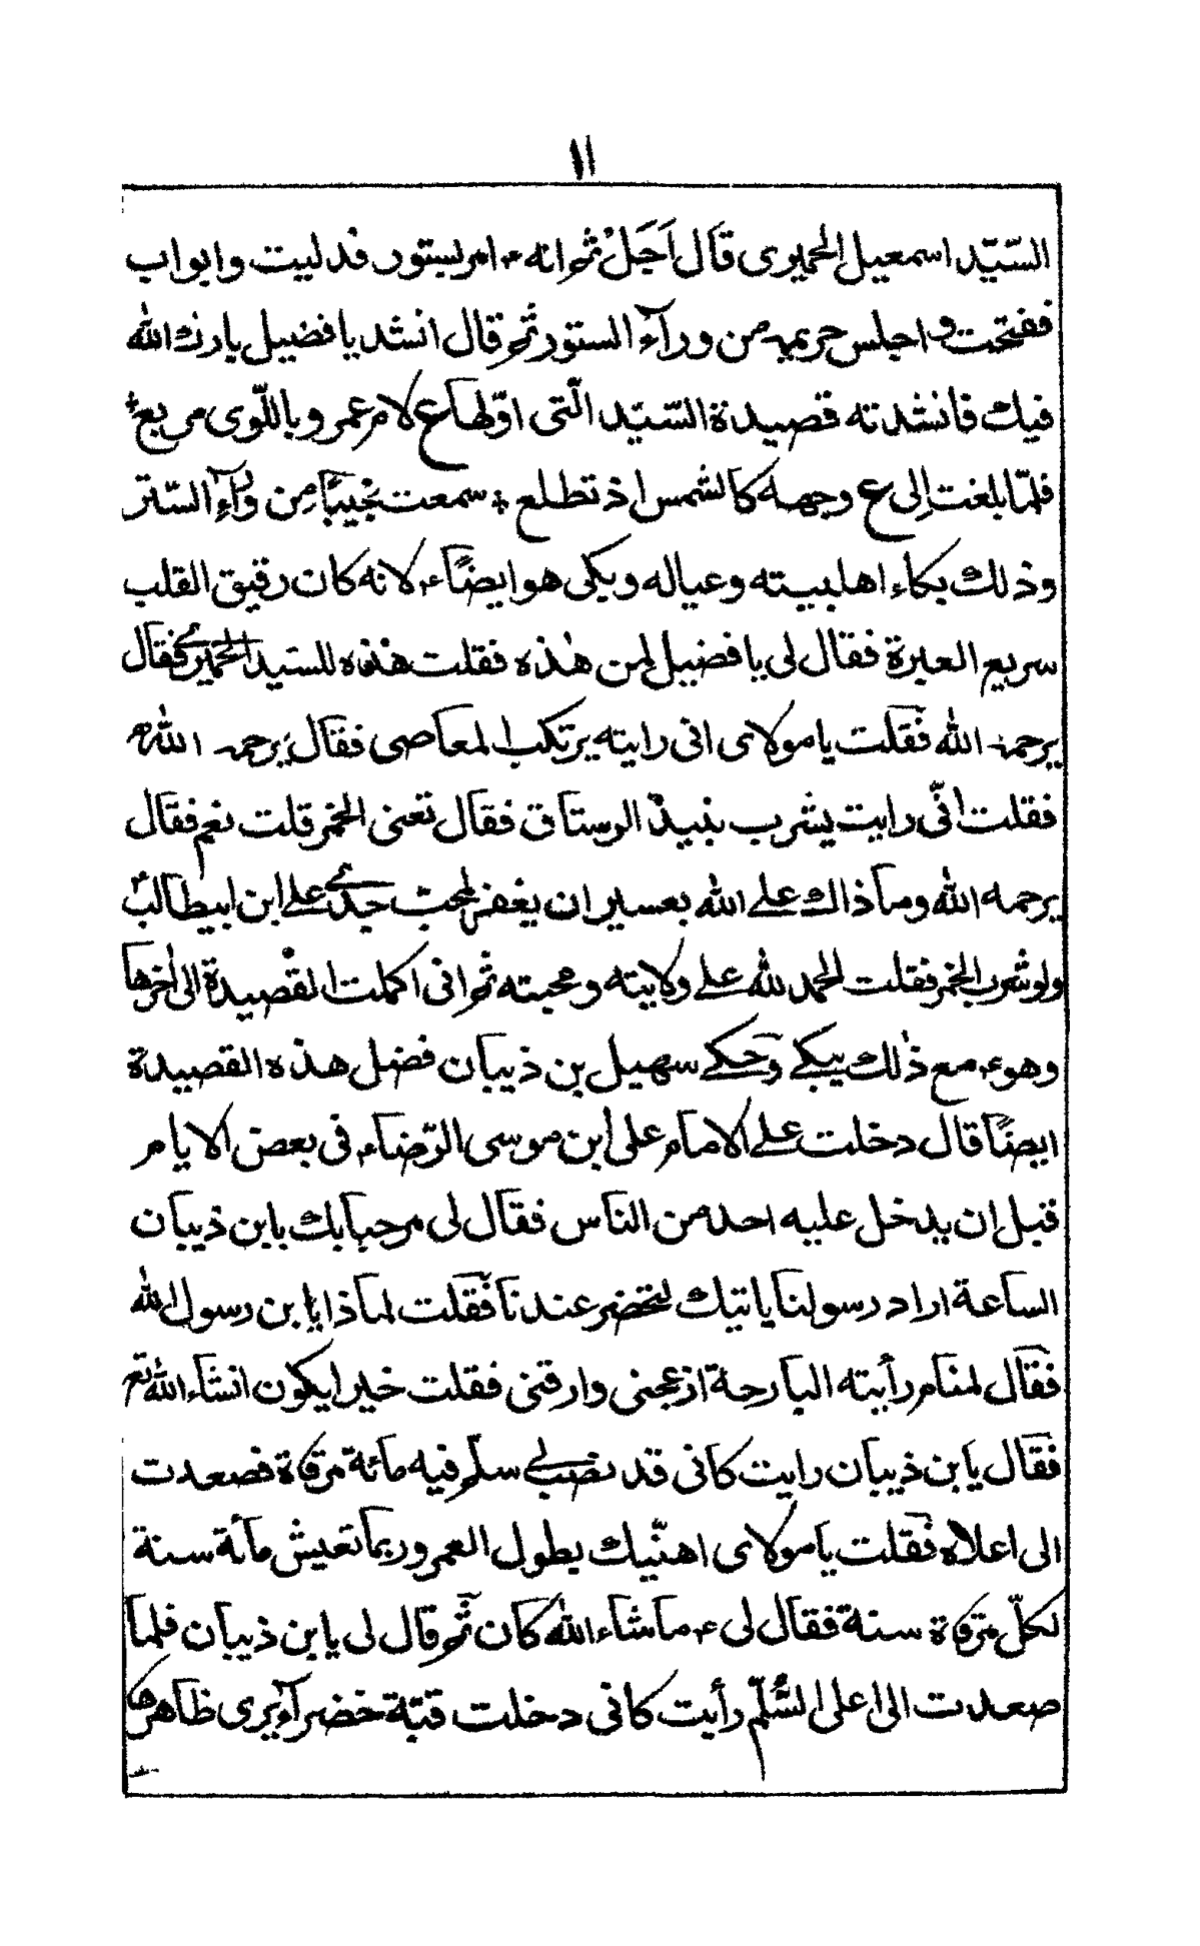 ١١
السّيّد اسمعيل الحميرى قال اَجَلْ ثم انه ع امر بستور فدليت وابواب
ففتحت و اجلس حريمه من ورآء الستور ثم قال انشد يا فضيل بارك الله
فيك فانشدته قصيدة السّيّد الّتى اوّلها ع لام عمرو باللّوى مربع
فلمّا بلغت الى ع وجهه كالشمس اذ تطلع سمعت نحيبًا مِن ورآءِ السّتر
وذلك بكاء اهلبيته وعياله وبكى هو ايضًا ع لانه كان رقيق القلب
سريع العبرة فقال لى يا فضيل لمن هٰذه فقلت هذه للسّيد الحميرى فقال
يرحمه الله فقلت يا مولاى انى رايته يرتكب المعاصى فقال يرحمه الله
فقلت انّى رايت يشرب نبيذ الرستاق فقال تعنى الخمر قلت نعم فقال
يرحمه الله وما ذاك على الله بعسير ان يغفر لمحب جدى على ابن ابيطالب
ولو شرب الخمر فقلت الحمد لله على ولايته ومحبته ثم انى اكملت القصيدة الى اخرها
وهو ع مع ذٰلك يبكى وحكى سهيل بن ذيبان فضل هذه القصيدة
ايضًا قال دخلت على الامام على ابن موسى الرّضا ع فى بعض الايام
قبل ان يدخل عليه احد من الناس فقال لى مرحبا بك يابن ذيبان
الساعة اراد رسولنا ياتيك لتحضر عندنا فقلت لماذا يابن رسول الله
فقال لمنام رأيته البارحة ازعجنى وارقنى فقلت خيرا يكون انشاء الله تع
فقال يابن ذيبان رايت كانى قد نصب لى سلّم فيه مائة مرقاة فصعدت
الى اعلاه فقلت يا مولاى اهنّيك بطول العمر وربما تعيش مأئة سنة
لكلّ مرقاة سنة فقال لى ع ما شاء الله كان ثم قال لى يابن ذيبان فلما
صعدت الى اعلى السُّلّم رأيت كانى دخلت قبّة خضرآء يرى ظاهرها